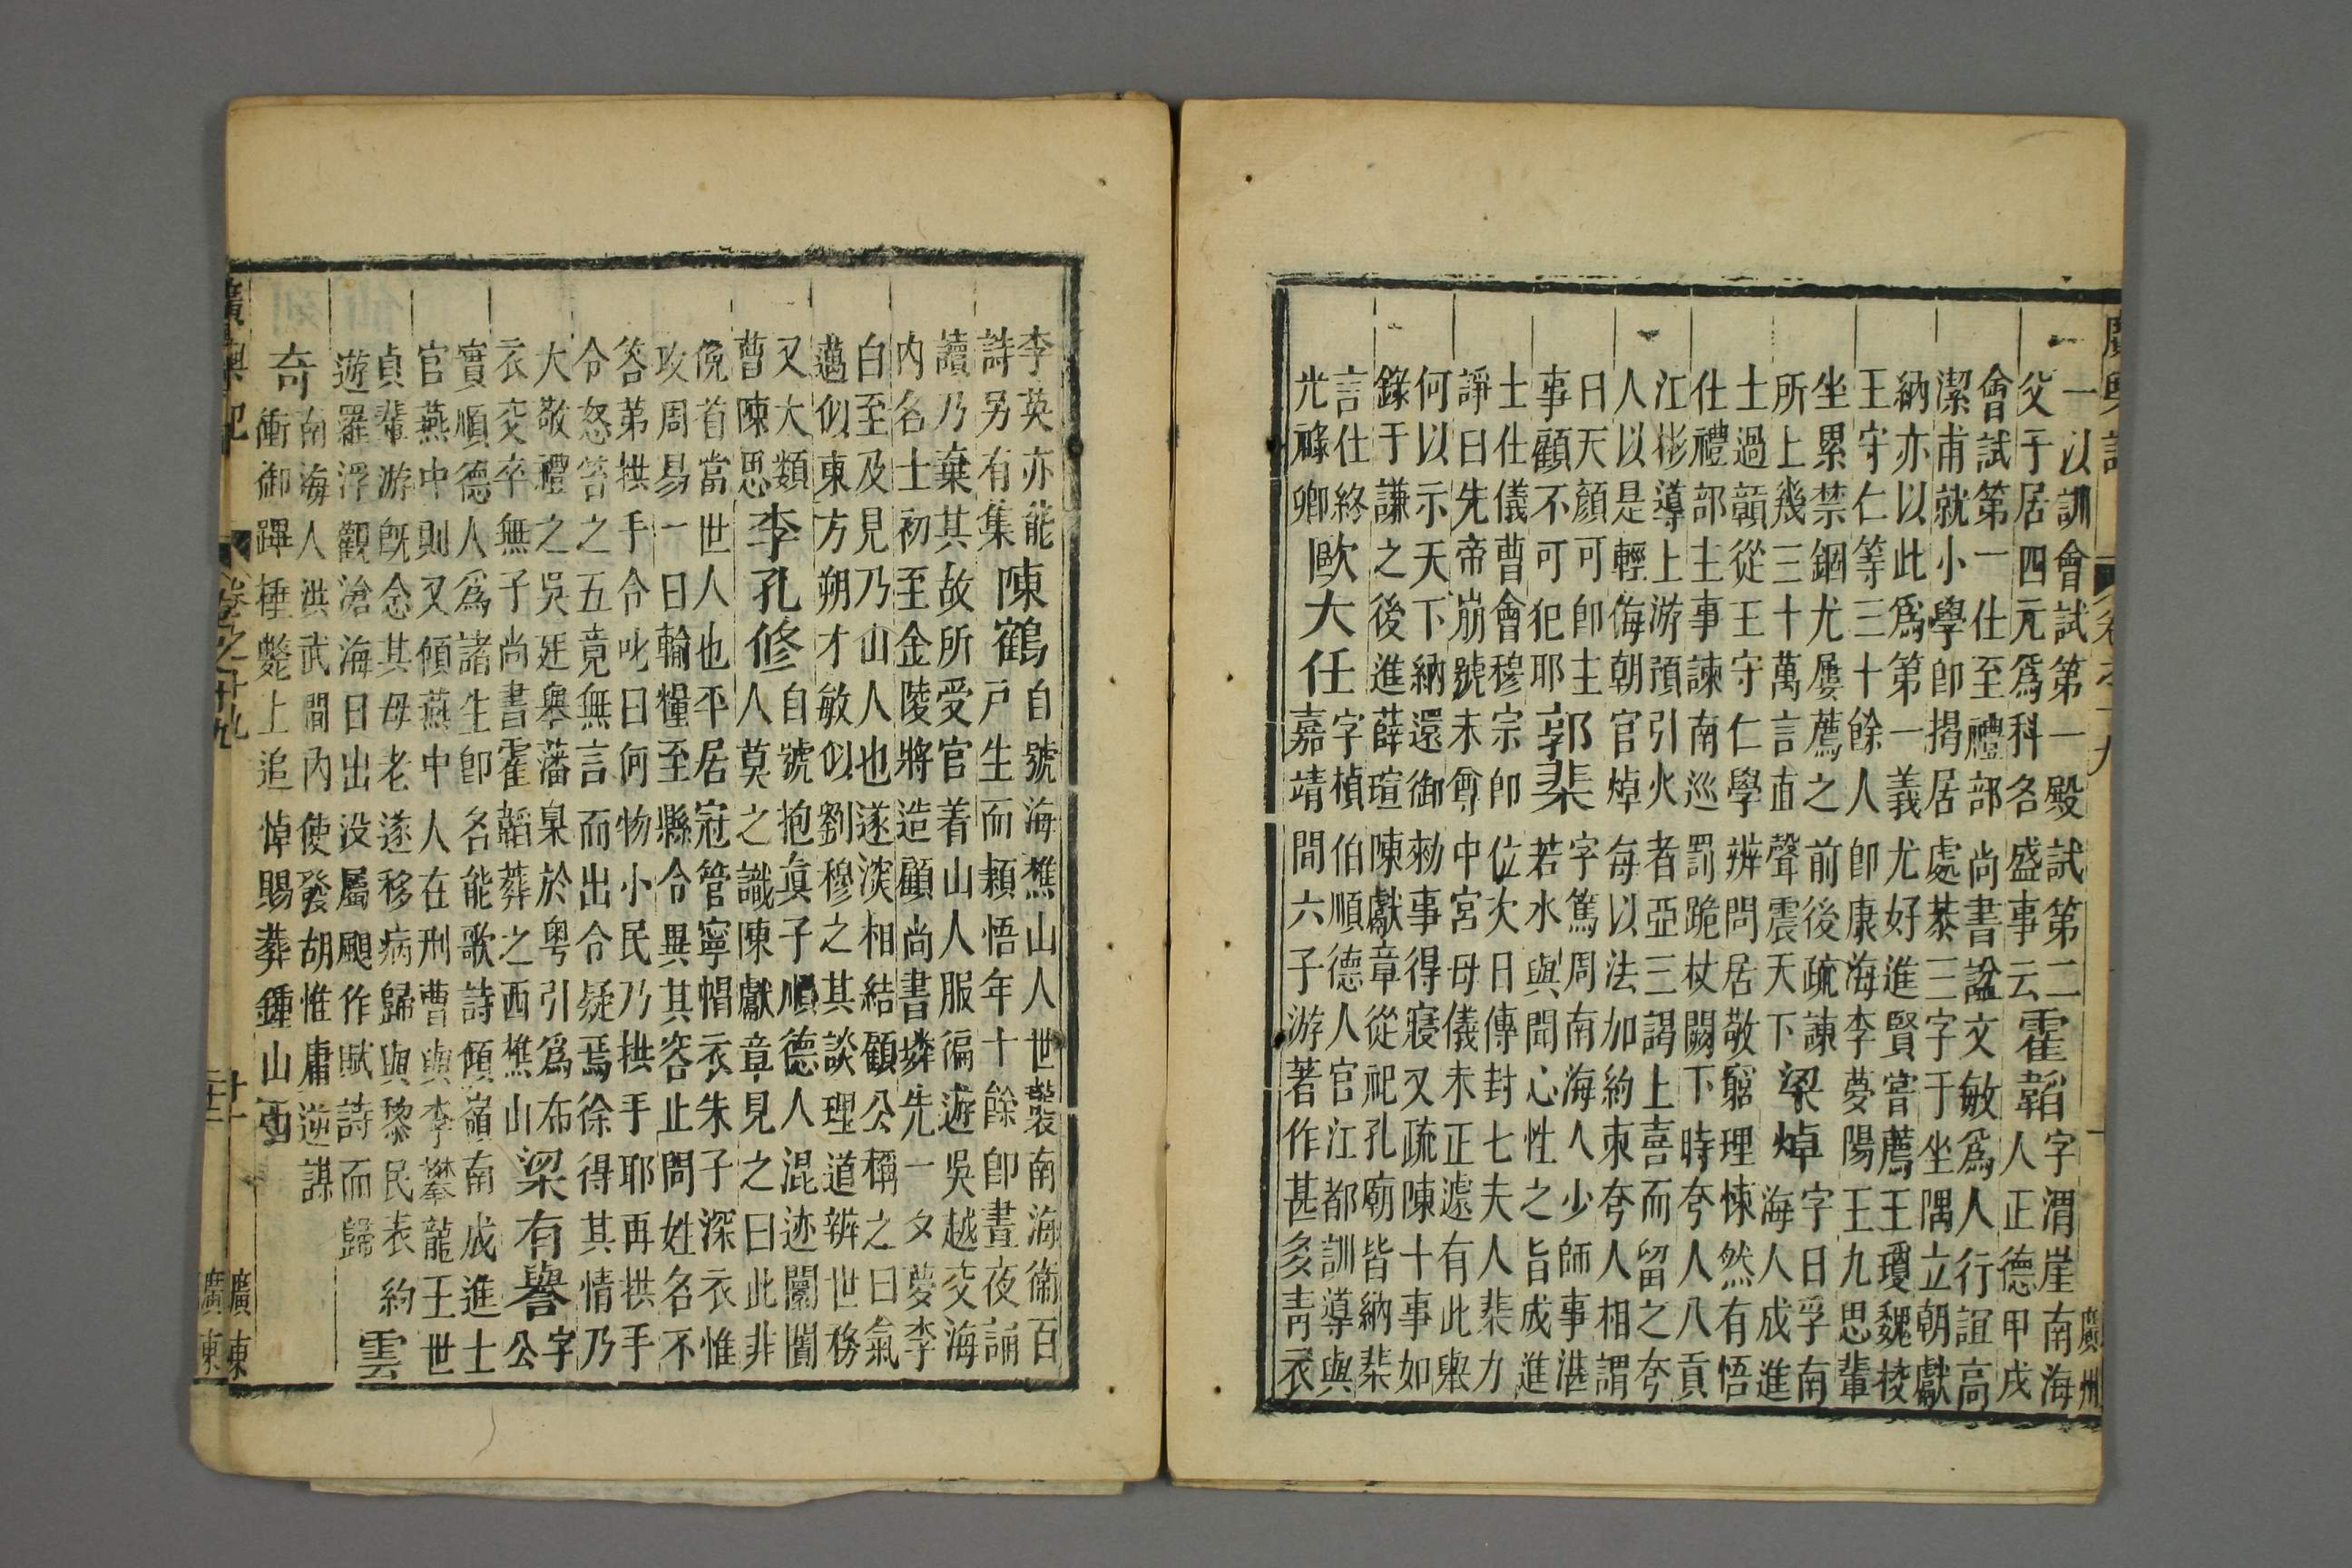 廣輿記 卷之十九 廣州
一以訓會試第一殿試第二
父于居四元爲科名盛事云
霍韜
字渭崖南海
人正德甲戌
會試第一仕至禮部尚書諡文敏爲人行誼高
潔甫就小學卽揭居處恭三字于坐隅立朝獻
納亦以此爲第一義尤好進賢嘗薦王瓊魏校
王守仁等三十餘人卽康海李夢陽王九思輩
坐累禁錮尤屢薦之前後疏諫
所上幾三十萬言直聲震天下
梁焯
字日孚南
海人成進
士過贛從王守仁學辨問居敬窮理悚然有悟
仕禮部主事諫南巡罰跪杖闕下時夸人八貢
江彬導上游預引火者亞三謁上喜而留之夸
人以是輕侮朝官焯每以法加約束夸人相謂
曰天顔可卽主
事顧不可犯耶
郭棐
字篤周南海人少師事湛
若水與聞心性之旨成進
士仕儀曹會穆宗卽位次日傳封七夫人棐力
諍曰先帝崩號未尊中宮母儀未正遽有此舉
何以示天下納還御勑事得寢又疏陳十事如
錄于謙之後進薛瑄陳獻章從祀孔廟皆納棐
言仕終
光祿卿
歐大任
字楨伯順德人官江都訓導與
嘉靖間六子游著作甚多靑衣
李英亦能
詩另有集
陳鶴
自號海樵山人世襲南海衛百
戶生而穎悟年十餘卽晝夜誦
讀乃棄其故所受官着山人服徧遊吳越交海
內名士初至金陵將造顧尚書璘先一夕夢李
白至及見乃山人也遂淡相結顧公稱之曰氣
邁似東方朔才敏似劉穆之其談理道辨世務
又大類
曹陳思
李孔修
自號抱眞子順德人混迹闤闠
人莫之識陳獻章見之曰此非
俛首當世人也平居冠管寧帽衣朱子深衣惟
攻周易一日輸糧至縣令異其容止問姓名不
答第拱手令叱曰何物小民乃拱手耶再拱手
令怒笞之五竟無言而出令疑焉徐得其情乃
大敬禮之吳廷舉藩臬於粤引爲布
衣交卒無子尚書霍韜葬之西樵山
梁有譽
字
公
實順德人爲諸生卽名能歌詩傾嶺南成進士
官燕中則又傾燕中人在刑曹與李攀龍王世
貞輩游旣念其母老遂移病歸與黎民表約
遊羅浮觀滄海日出没屬颶作賦詩而歸
雲
奇
南海人洪武間內使發胡惟庸逆謀
衝御蹕棰斃上追悼賜葬鍾山西
廣輿記 卷之十九 廣東